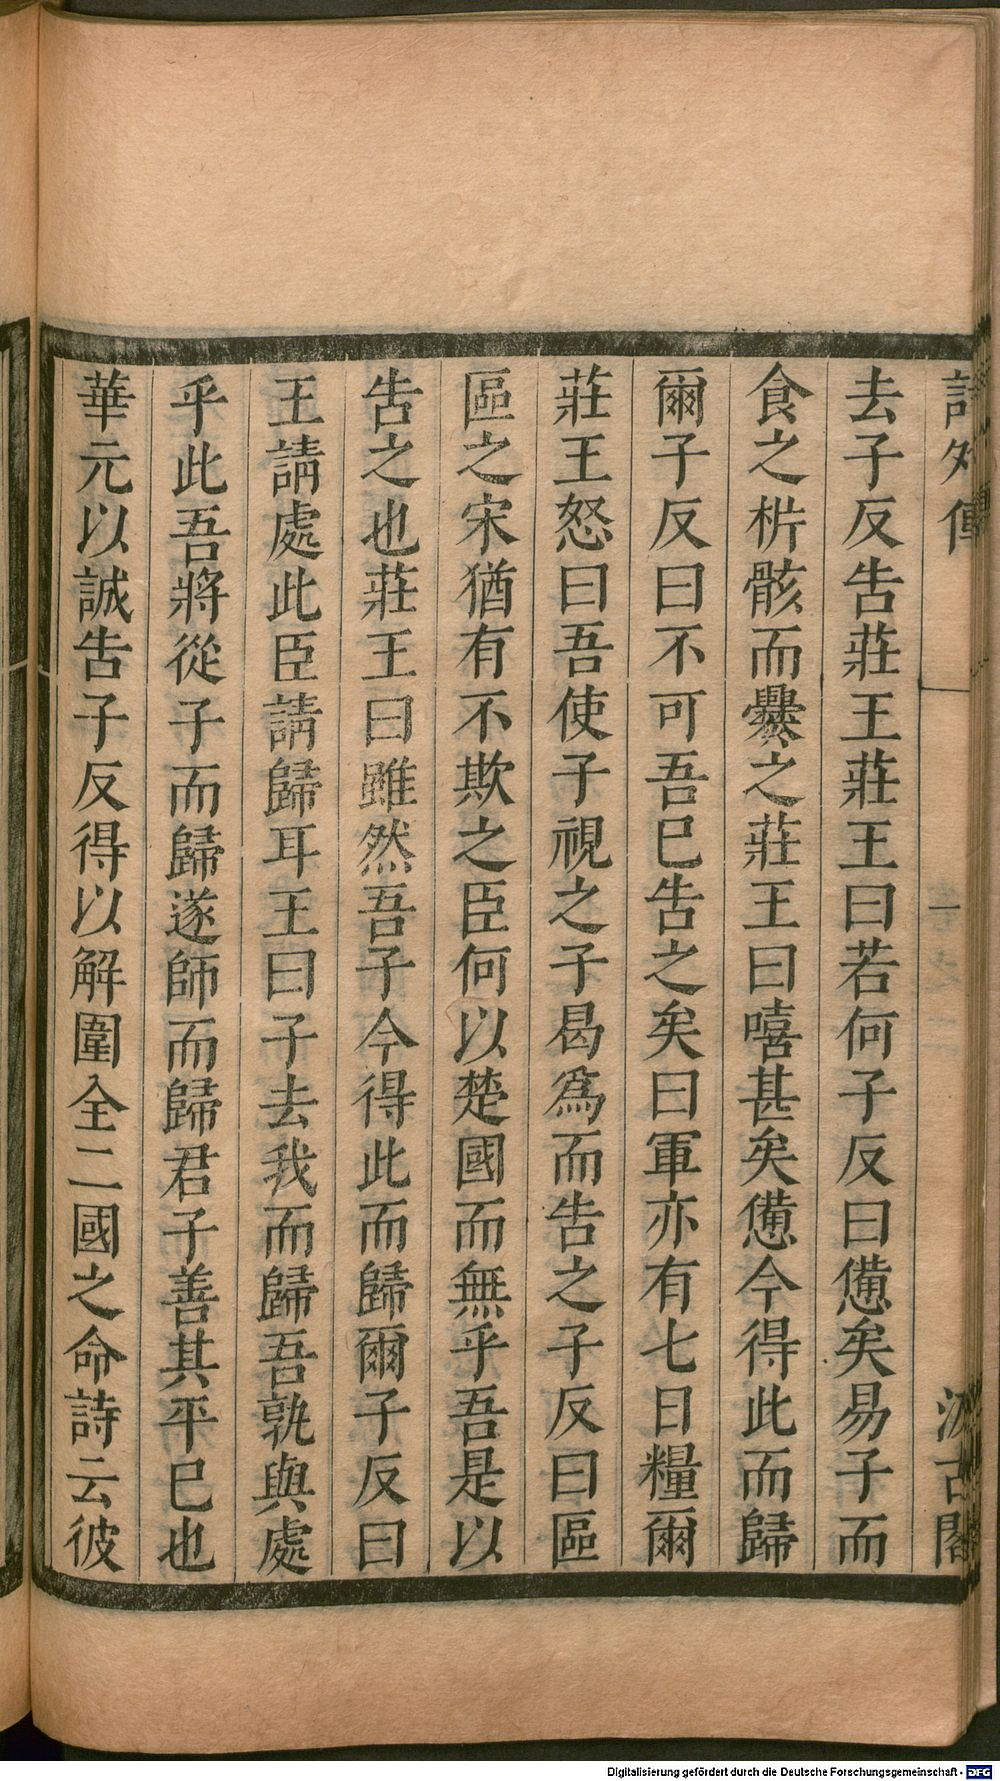 詩外傳 一 汲古閣
去子反告莊王莊王曰若何子反曰憊矣易子而
食之析骸而爨之莊王曰嘻甚矣憊今得此而歸
爾子反曰不可吾已告之矣曰軍亦有七日糧爾
莊王怒曰吾使子視之子曷爲而告之子反曰區
區之宋猶有不欺之臣何以楚國而無乎吾是以
告之也莊王曰雖然吾子今得此而歸爾子反曰
王請處此臣請歸耳王曰子去我而歸吾孰與處
乎此吾將從子而歸遂師而歸君子善其平已也
華元以誠告子反得以解圍全二國之命詩云彼
Digitalisierung gefördert durch die Deutsche Forschungsgemeinschaft - DFG